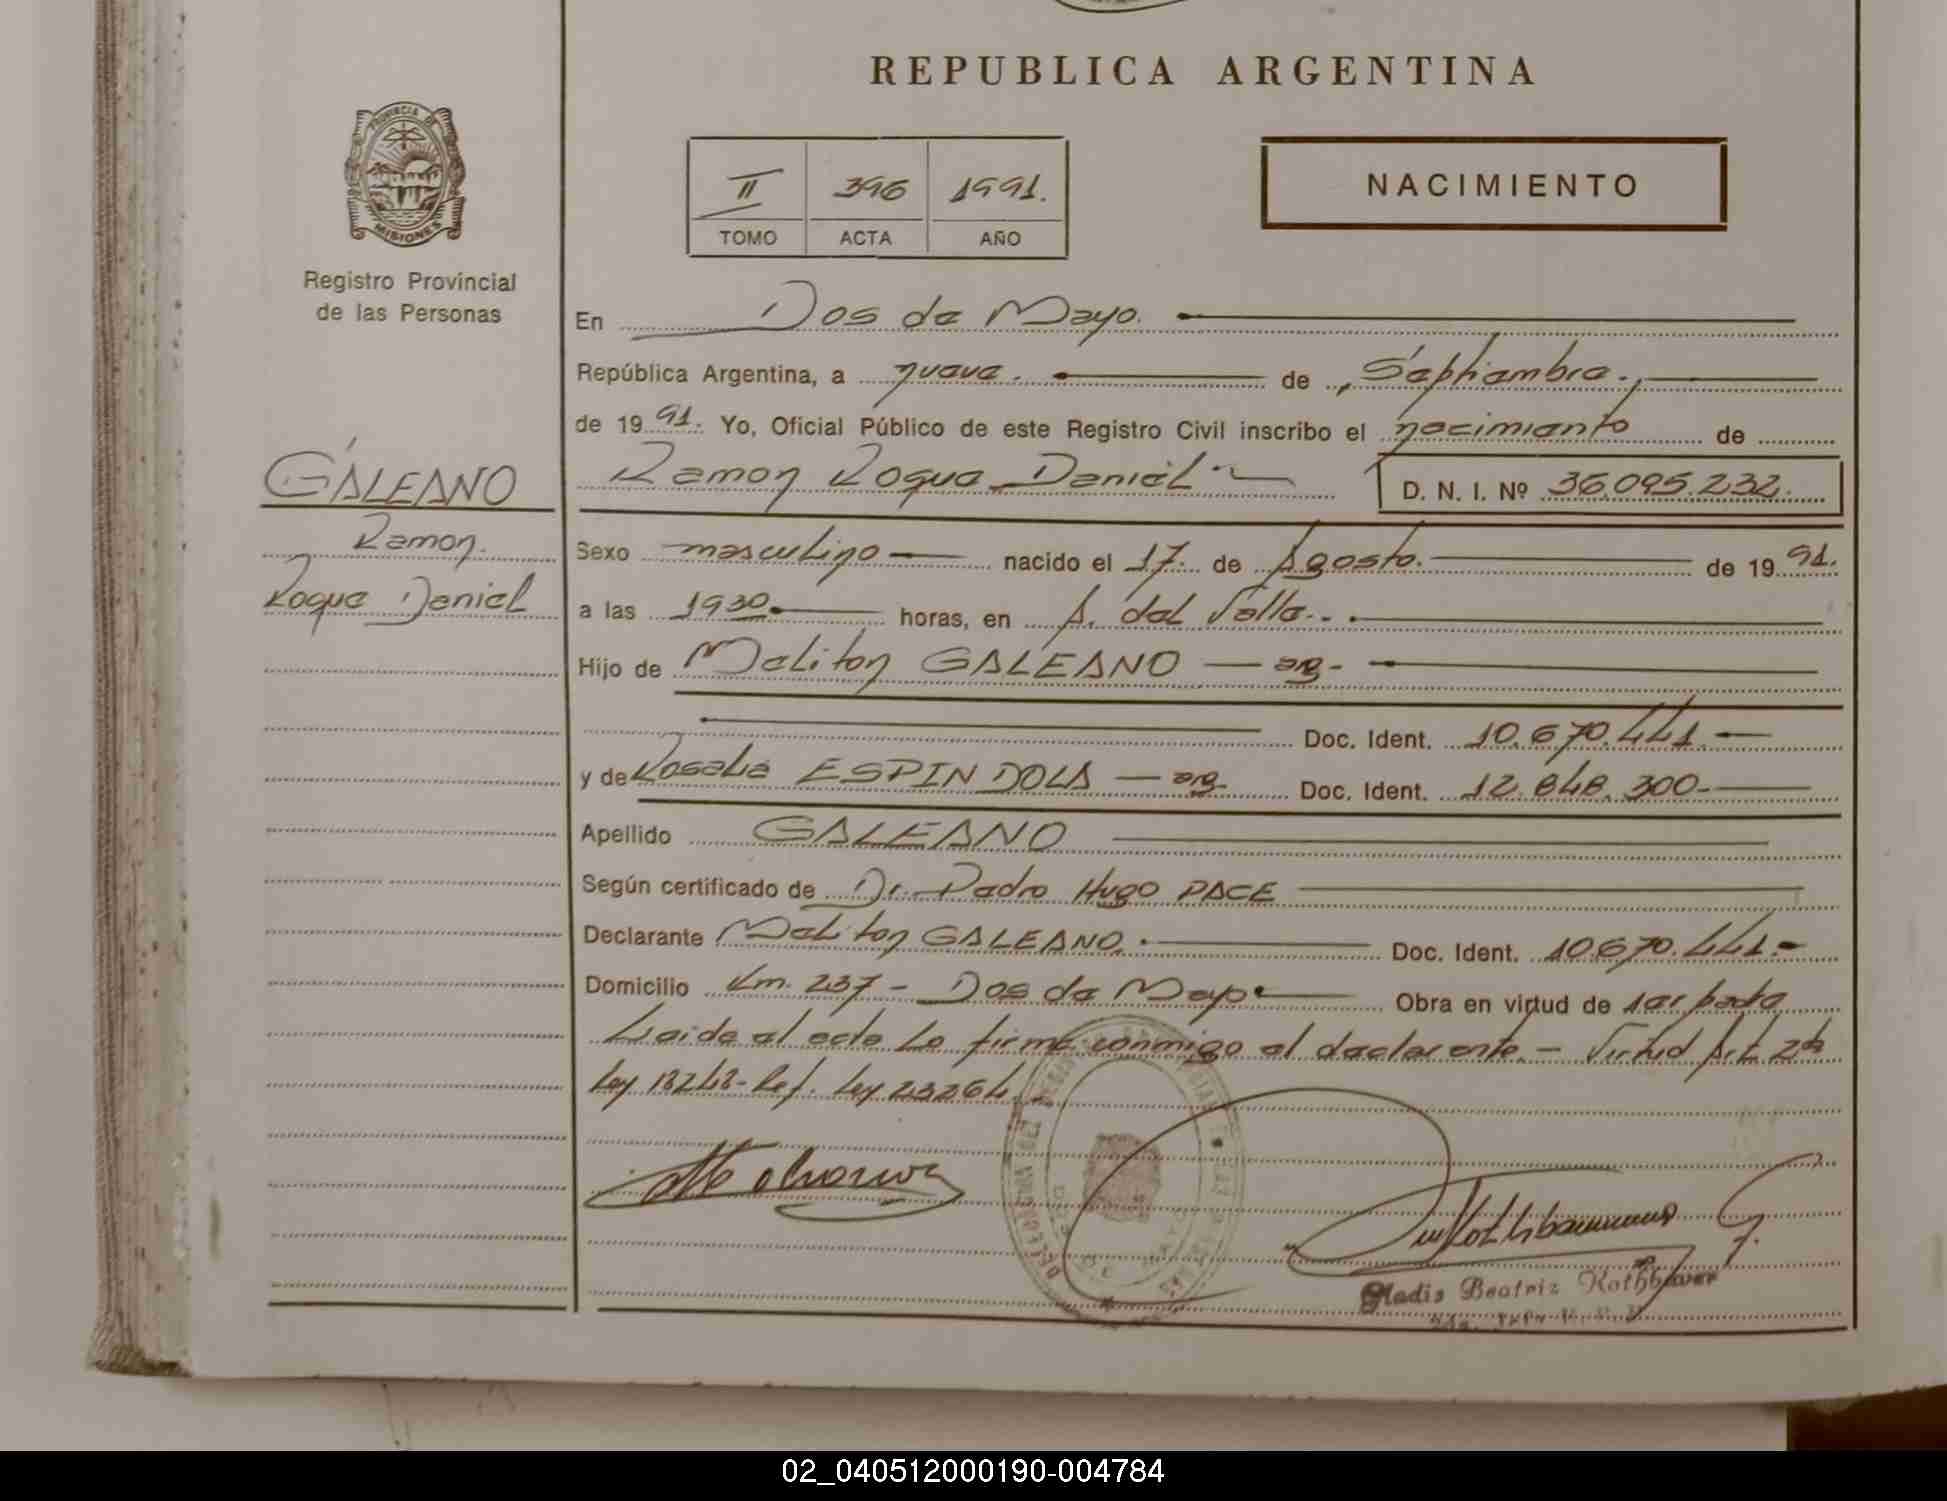 REPUBLICA ARGENTINA
PROVINCIA DE
MISIONES
Registro Provincial
de las Personas
II 396 1991.
TOMO ACTA AÑO
NACIMIENTO
En Dos de Mayo.
República Argentina, a nueve. de Septiembre.
de 19 91. Yo, Oficial Público de este Registro Civil inscribo el nacimiento de
GALEANO
Ramon
Roque Daniel
Ramon Roque Daniel D. N. I. Nº 36.095.232.
Sexo masculino nacido el 17. de Agosto. de 19 91.
a las 1930 horas, en A. del Valle.
Hijo de Meliton GALEANO — arg-
Doc. Ident. 10.670.441.-
y de Rosalia ESPINDOLA — arg- Doc. Ident. 12.848.300-
Apellido GALEANO
Según certificado de Dr. Pedro Hugo PACE
Declarante Meliton GALEANO. Doc. Ident. 10.670.441.-
Domicilio Km. 237 - Dos de Mayo Obra en virtud de ser padre
Leida el acta la firma conmigo el declarante - Virtud Art. 2do
Ley 18248-Ref. Ley 23264.
Gladis Beatriz Rothbauer
02_040512000190-004784